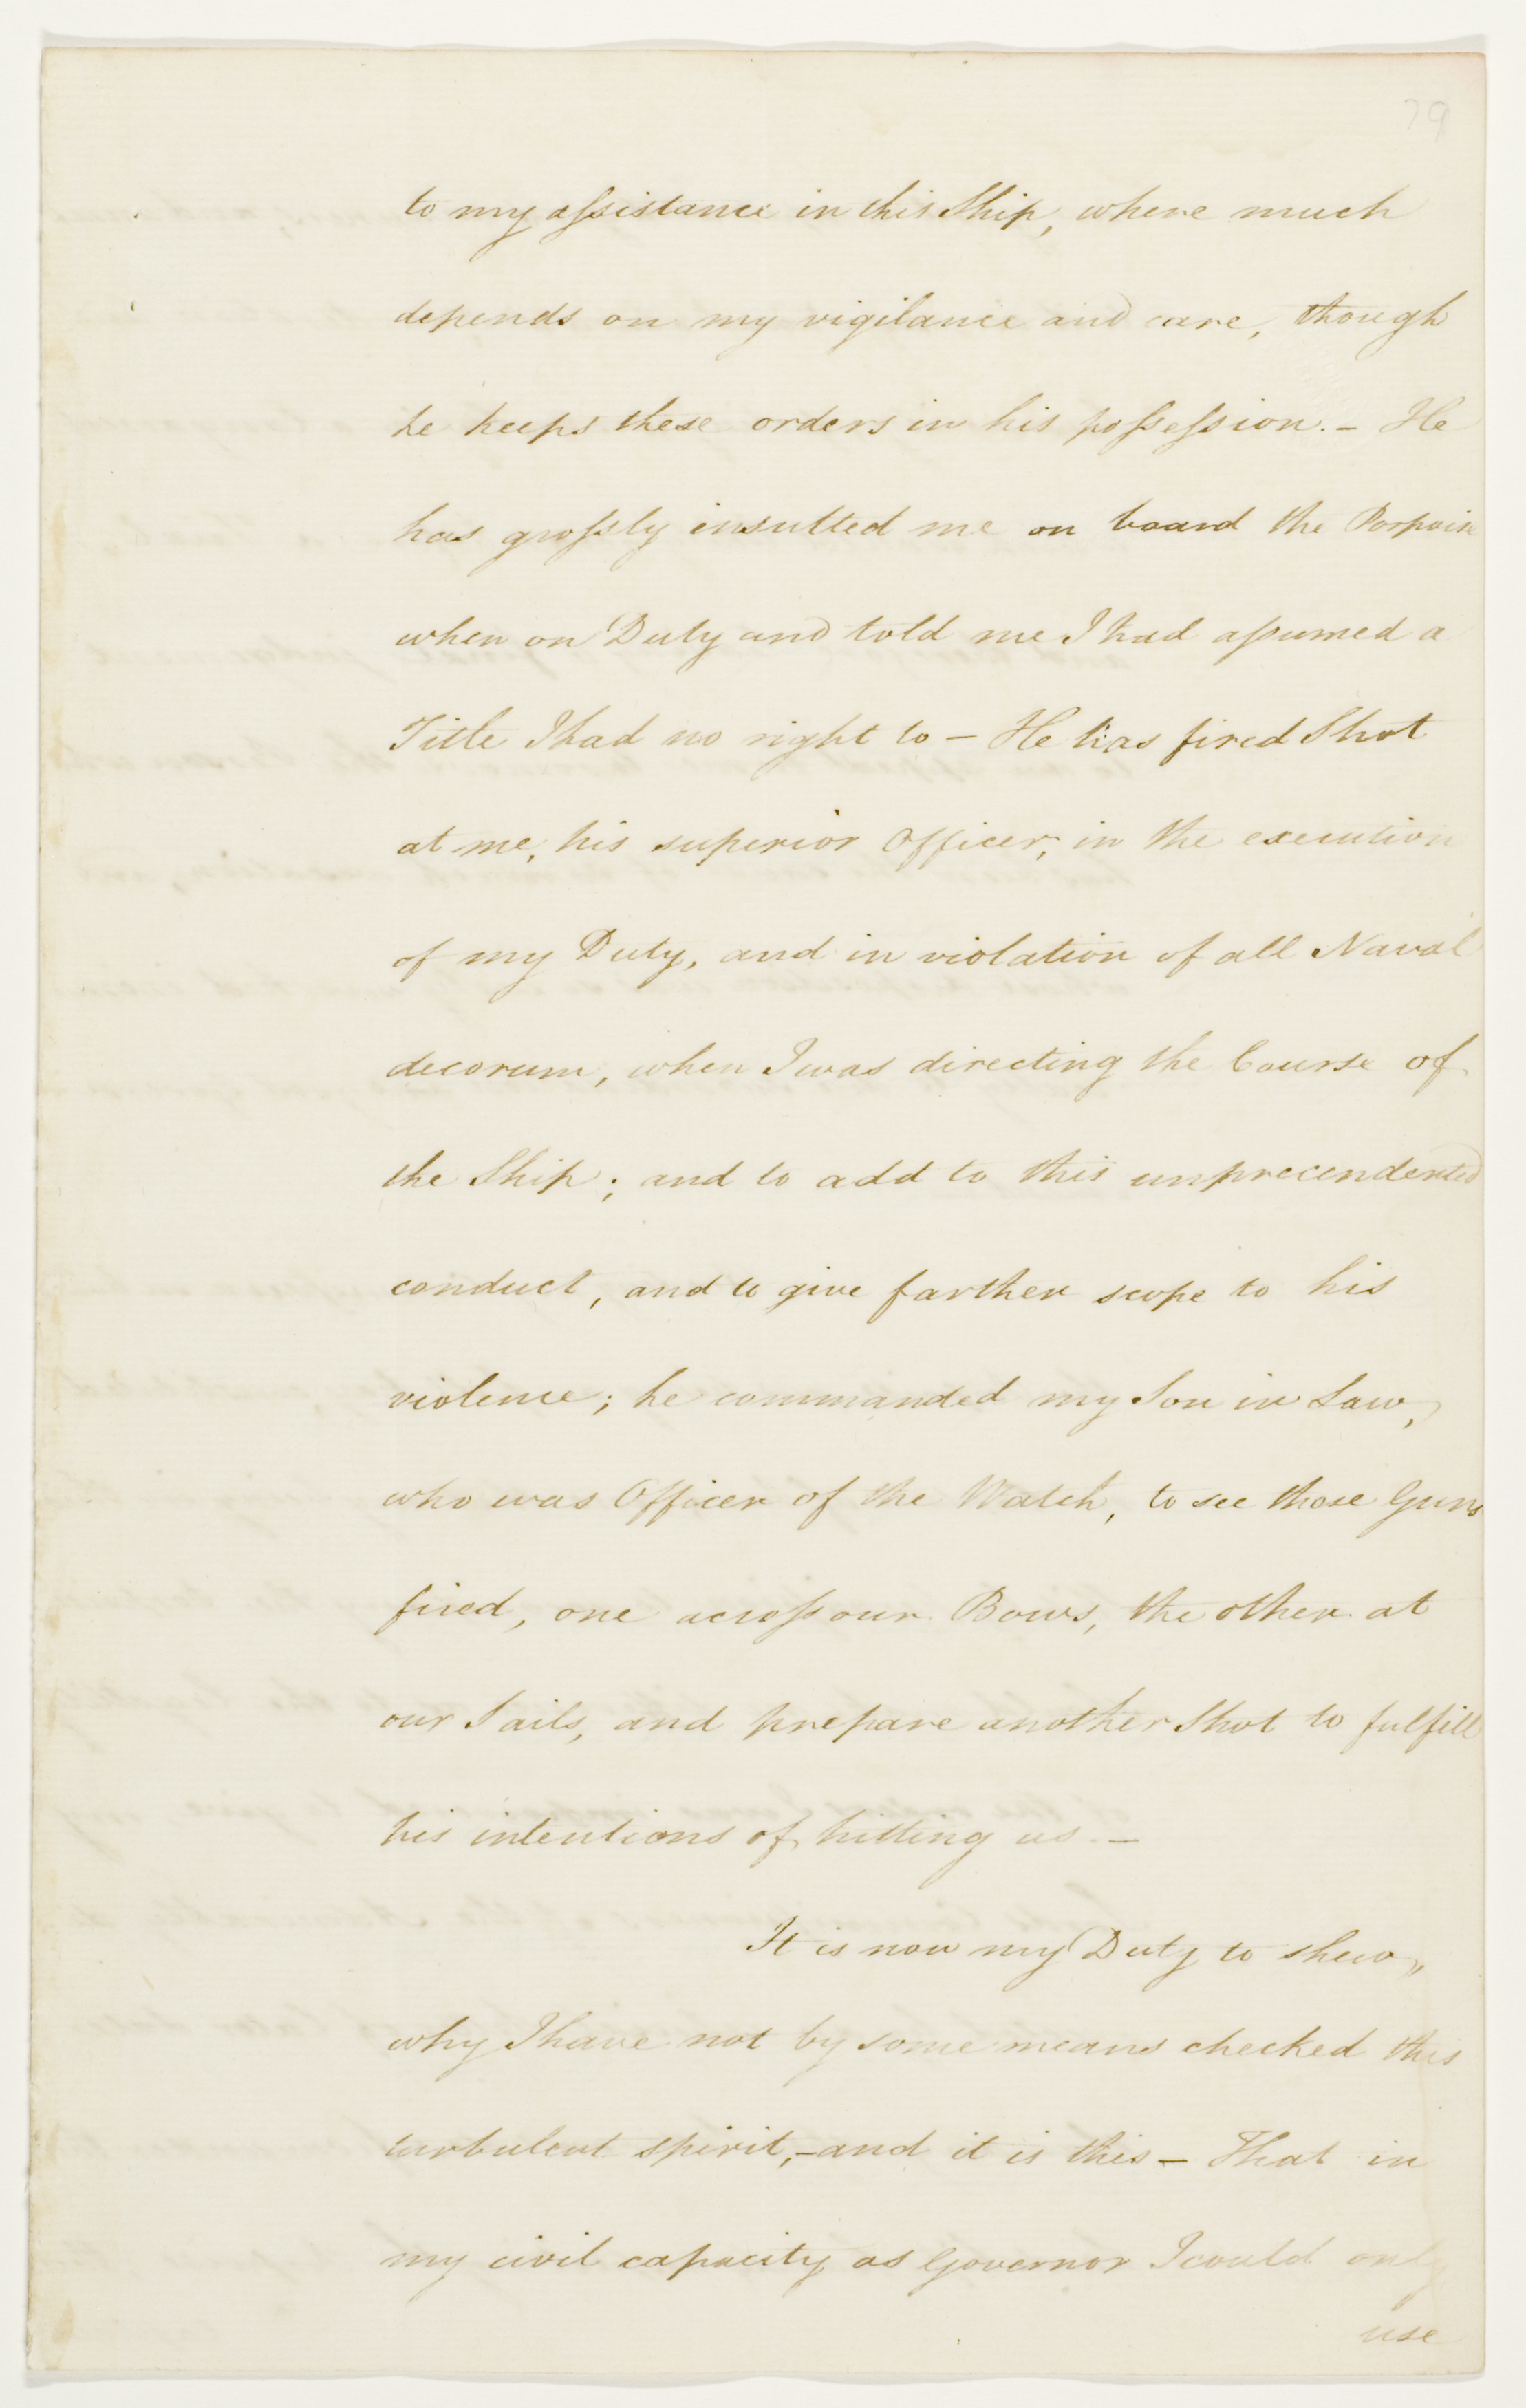 79
to my assistance in this Ship, where much
depends on my vigilance and care, though
he keeps these orders in his possession. - He
has grossly insulted me on board the Porpoise
when on Duty and told me I had assumed a
Title I had no right to - He has fired Shot
at me, his superior Officer, in the execution
of my Duty, and in violation of all Naval
decorum, when I was directing the Course of
the Ship; and to add to this unprecendented
conduct, and to give farther scope to his
violence; he commanded my Son in Law,
who was Officer of the Watch, to see those Guns
fired, one across our Bows, the other at
our Sails, and prepare another Shot to fulfill
his intentions of hitting us. -
It is now my Duty to shew,,
why I have not by some means checked this
turbulent spirit, - and it is this - That in
my civil capacity as Governor I could only
use